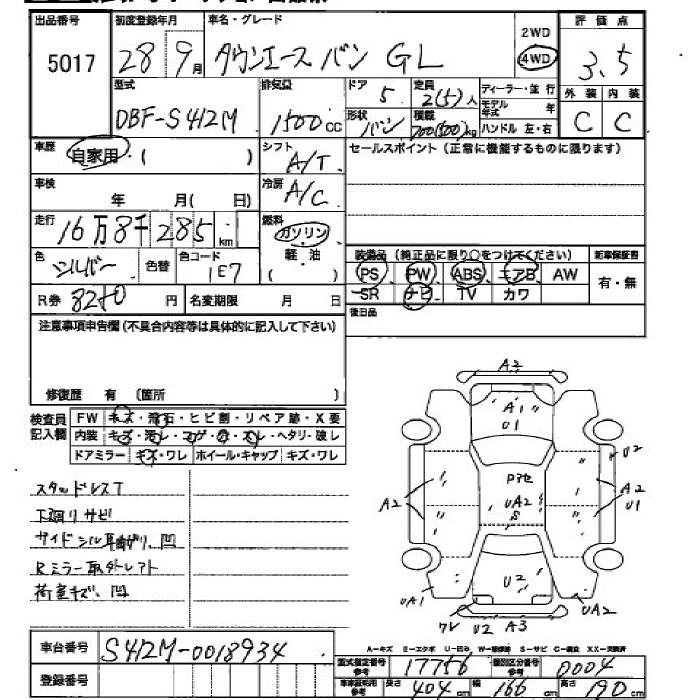 出品番号 初度登録年月 車名・グレード 2WD 評価点
5017 28年9月 タウンエースバン GL 4WD 3.5
型式 排気量 ドア 定員 ディーラー・並行 外装 内装
DBF-S412M 1500cc 5 2(5)人 モデル年式 年 C C
形状 バン 積載 700(500)kg ハンドル 左・右
車歴 自家用 ( ) シフト A/T セールスポイント (正常に機能するものに限ります)
車検 年 月( 日) 冷房 A/C
走行 16万8千285km 燃料 ガソリン
色 シルバー 色替 色コード 1E7 軽・油 ( )
装備品 (純正品に限り○をつけてください) 新車保証書
PS PW ABS エアB AW 有・無
SR ナビ TV カワ
R券 8280円 名変期限 月 日 後日品
注意事項申告欄(不具合内容等は具体的に記入して下さい)
修復歴 有 (箇所 )
検査員記入欄 FW キズ・飛石・ヒビ割・リペア跡・X要
内装 キズ・汚レ・コゲ・穴・スレ・ヘタリ・破レ
ドアミラー キズ・ワレ ホイール・キャップ キズ・ワレ
スタッドレスT
下廻りサビ
サイドシル耳曲がり、凹
Rミラー取外レアト
荷室キズ、凹
A2
A1
U1
U2
A2 Pアセ A2
UA2 U1
S
U2
UA1 UA2
ワレ U2 A3
車台番号 S412M-0018934
登録番号
A-キズ E-エクボ U-凹み W-補修跡 S-サビ C-腐食 XX-交換済
型式指定番号 参考 17756 類別区分番号 参考 0004
車庫証明用 参考 長さ 404cm 幅 166cm 高さ 190cm